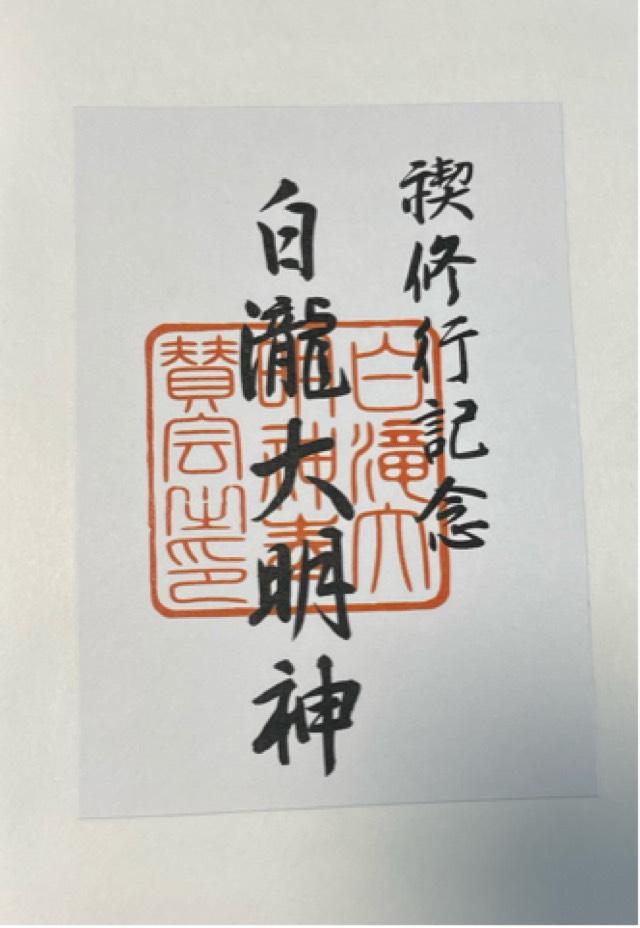 禊修行記念
白瀧大明神
白滝大
明神奉
賛会之印